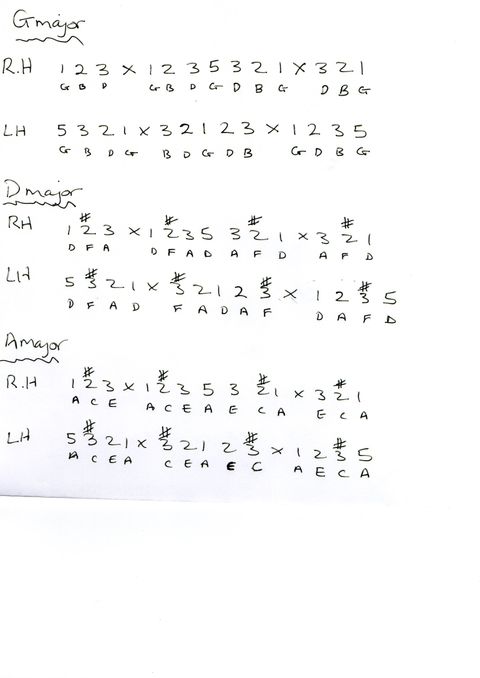 G major
R.H 1 2 3 x 1 2 3 5 3 2 1 x 3 2 1
G B D G B D G D B G D B G
LH 5 3 2 1 x 3 2 1 2 3 x 1 2 3 5
G B D G B D G D B G D B G
D major
# # # #
RH 1 2 3 x 1 2 3 5 3 2 1 x 3 2 1
D F A D F A D A F D A F D
# # # #
LH 5 3 2 1 x 3 2 1 2 3 x 1 2 3 5
D F A D F A D A F D A F D
A major
# # # #
R.H 1 2 3 x 1 2 3 5 3 2 1 x 3 2 1
A C E A C E A E C A E C A
# # # #
LH 5 3 2 1 x 3 2 1 2 3 x 1 2 3 5
A C E A C E A E C A E C A